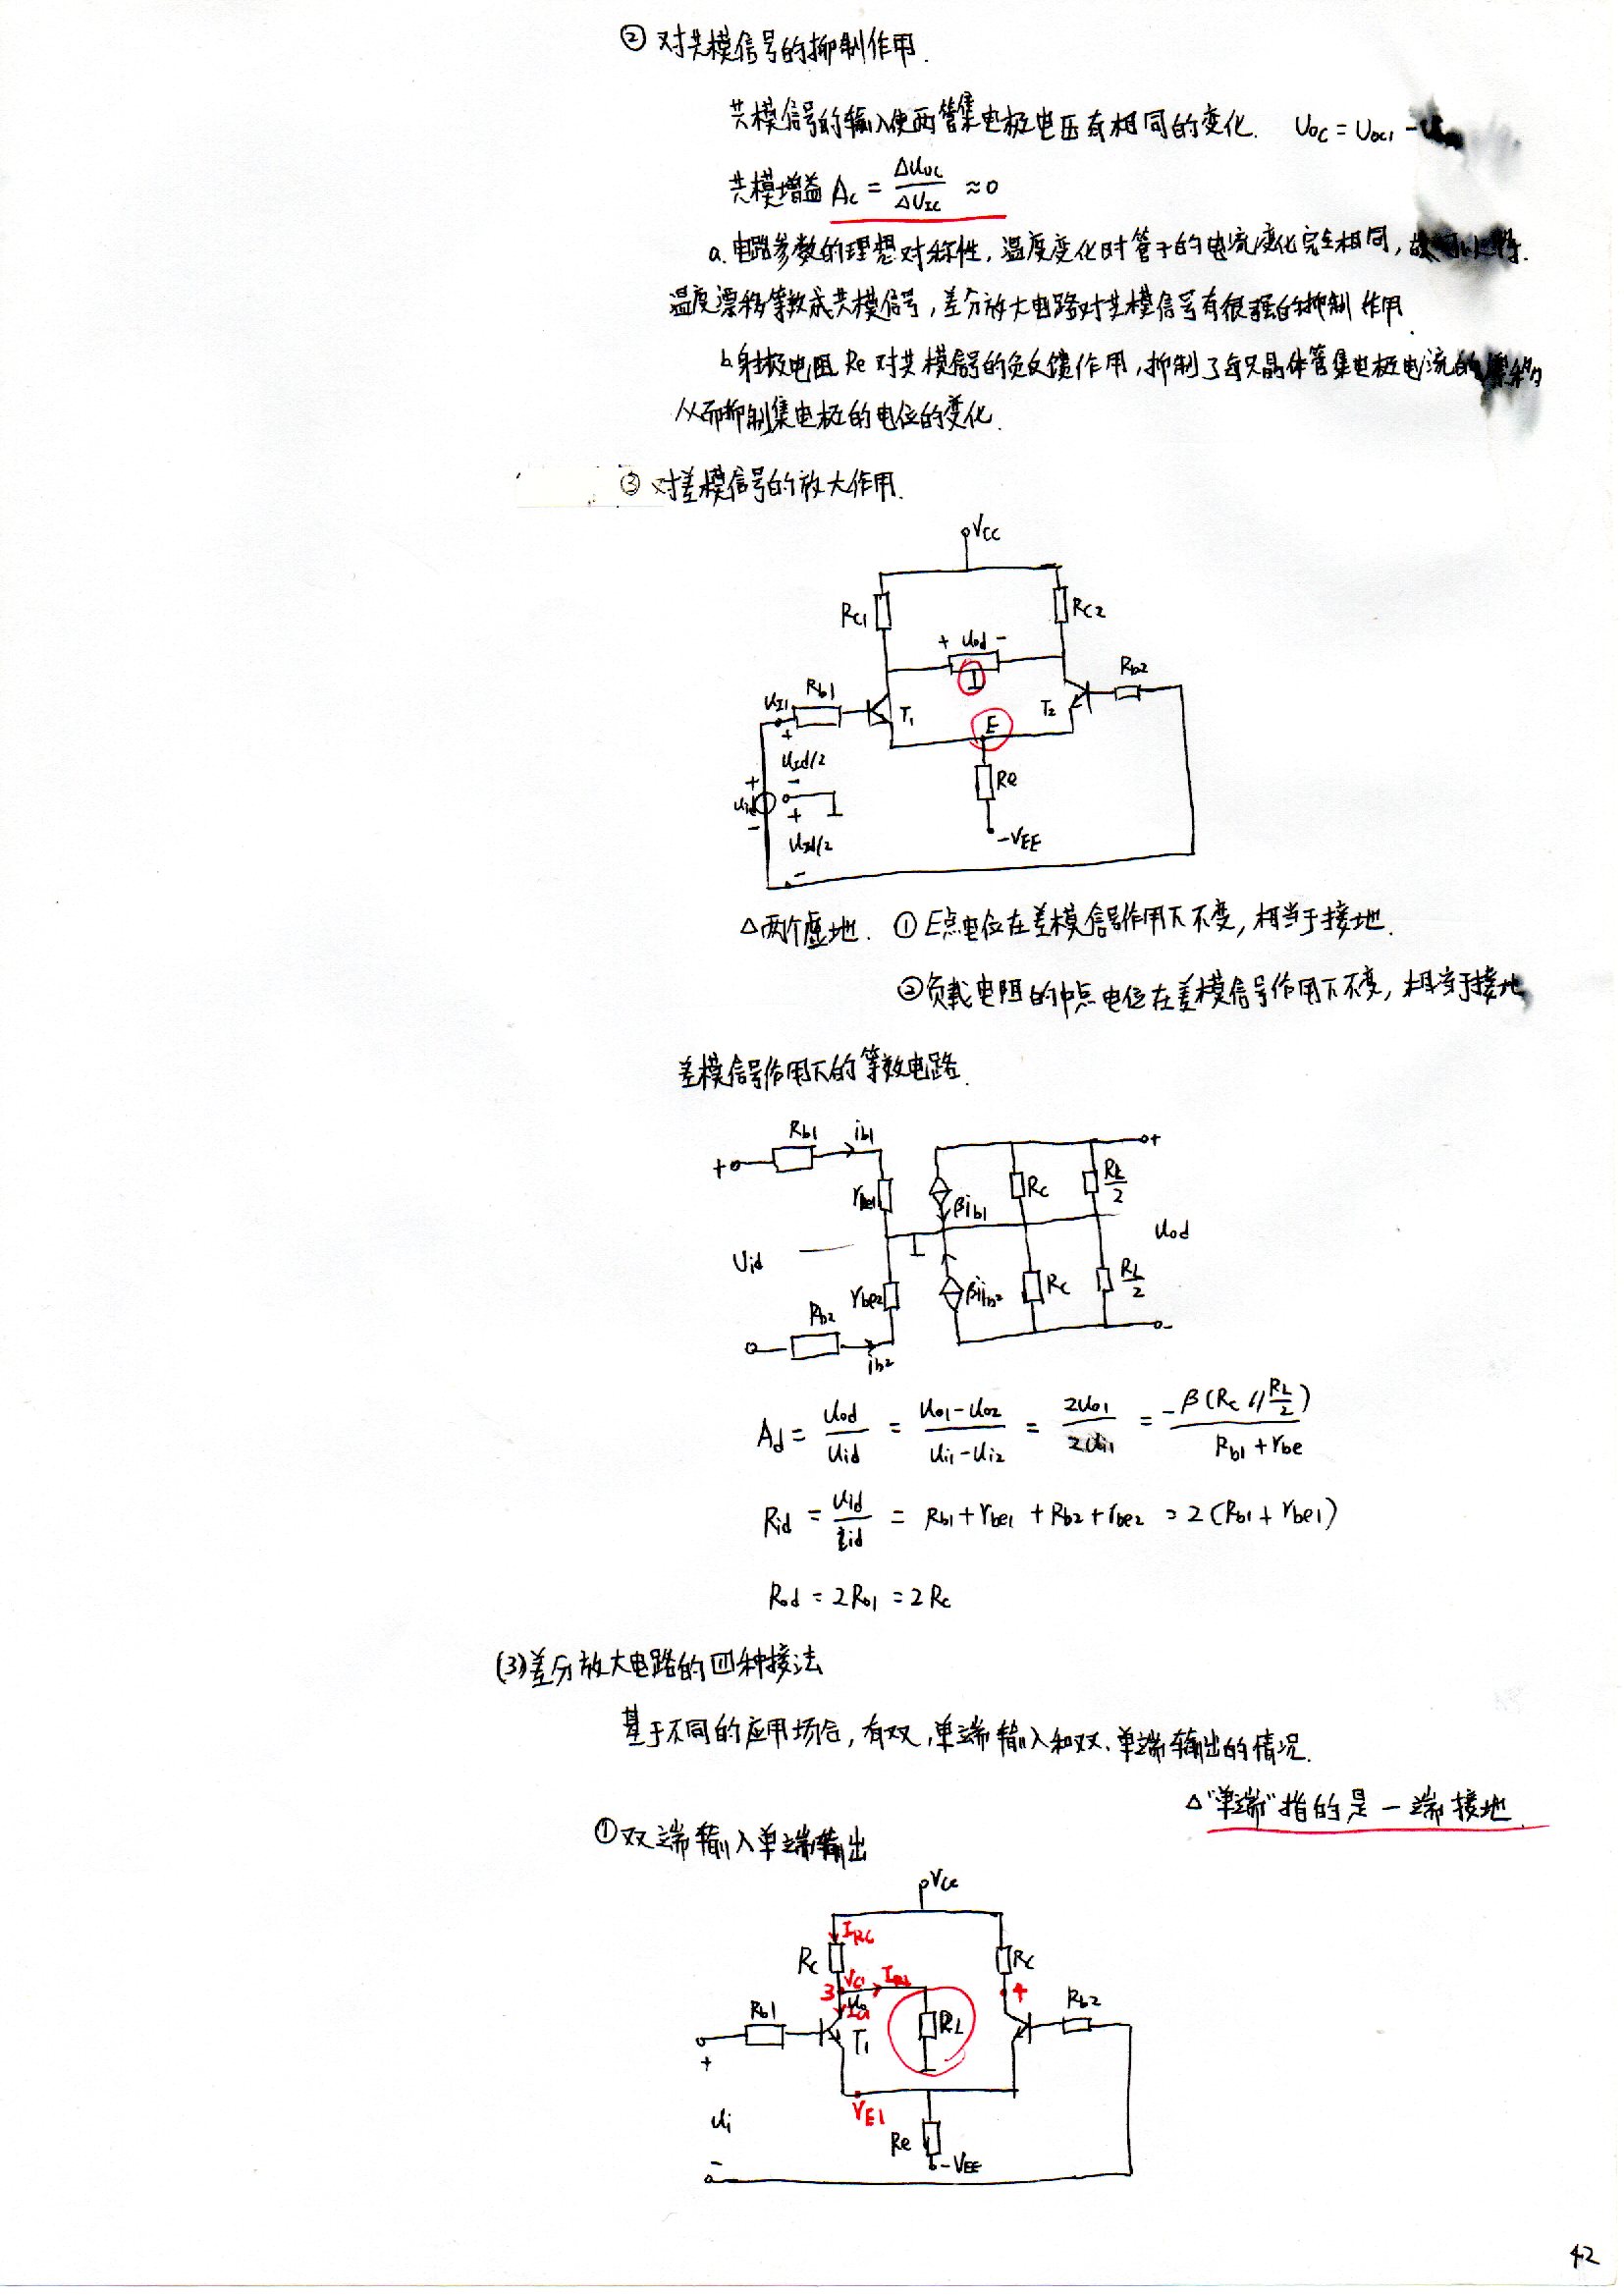 ② 对共模信号的抑制作用.
共模信号的输入使两管集电极电压有相同的变化. Uoc = Uoc1 -
共模增益 Ac = ΔUoc / ΔUIc ≈ 0
a. 电路参数的理想对称性, 温度变化时管子的电流变化完全相同,
温度漂移等效成共模信号, 差分放大电路对共模信号有很强的抑制作用.
b. 射极电阻 Re 对共模信号的负反馈作用, 抑制了每只晶体管集电极电流的
从而抑制集电极的电位的变化.
③ 对差模信号的放大作用.
VCC
Rc1
Rc2
+ uod -
Rb2
uI1
Rb1
T1
T2
E
+
uId/2
-
Re
+
uid
-
+
uId/2
-
-VEE
△两个虚地. ① E点电位在差模信号作用下不变, 相当于接地.
② 负载电阻的中点电位在差模信号作用下不变, 相当于接地
差模信号作用下的等效电路.
Rb1
ib1
+
+
rbe1
βib1
Rc
RL/2
Uid
uod
rbe2
βib2
Rc
RL/2
Rb2
ib2
-
Ad = uod/uid = (uo1-uo2)/(ui1-ui2) = 2uo1/2ui1 = -β(Rc // RL/2)/(Rb1+rbe)
Rid = uid/iid = Rb1+rbe1+Rb2+rbe2 = 2(Rb1+rbe1)
Rod = 2Ro1 = 2Rc
(3) 差分放大电路的四种接法
基于不同的应用场合, 有双, 单端输入和双、单端输出的情况.
△"单端"指的是一端接地.
① 双端输入单端输出
Vcc
IRc
Rc
Rc
3
Vc1
IRL
4
uo
Ic1
Rb1
RL
Rb2
T1
+
VE1
ui
Re
-VEE
-
42